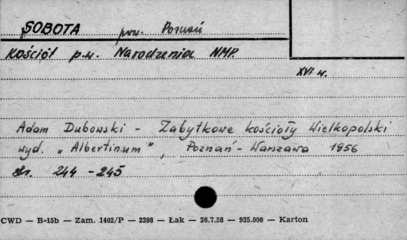 SOBOTA pow. Poznań
Kościół p.w. Narodzenia NMP.
XVI w.
Adam Dubowski - Zabytkowe kościoły Wielkopolski
wyd. „Albertinum", Poznań - Warszawa 1956
str. 244 - 245
CWD — B-15b — Zam. 1402/P — 2398 — Łak — 26.7.58 — 935.000 — Karton